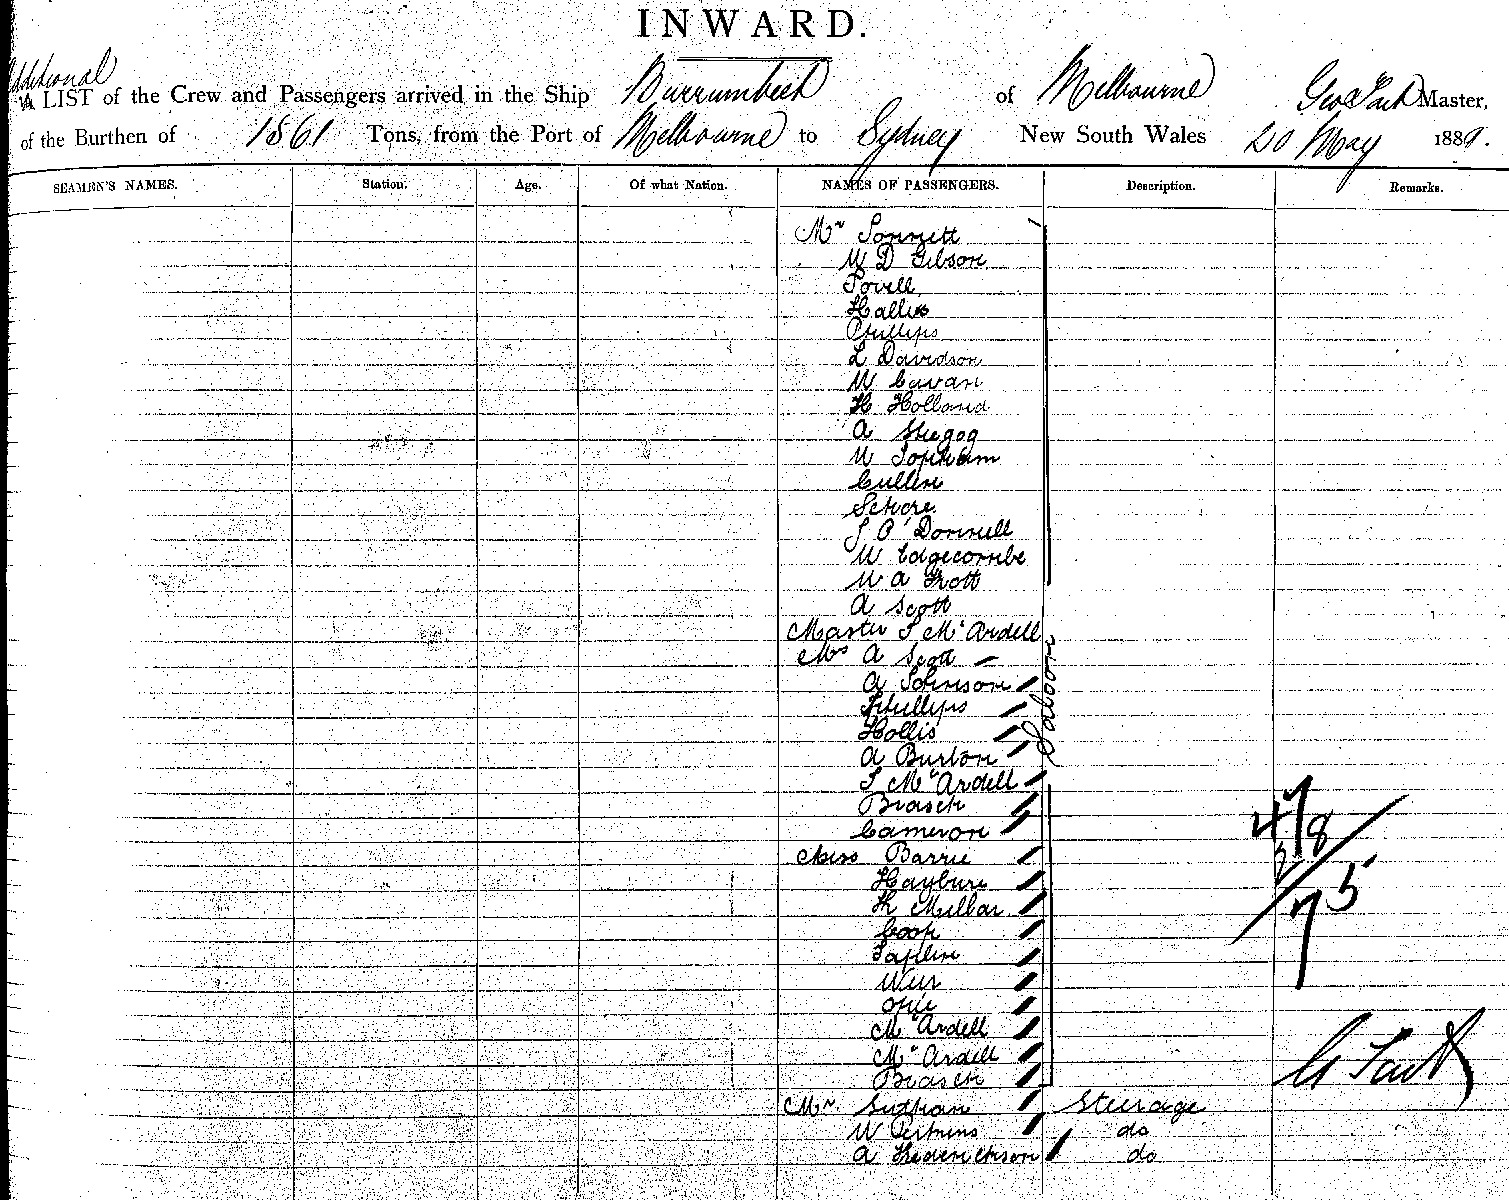 INWARD.
Additional
A LIST of the Crew and Passengers arrived in the Ship Burrumbeet of Melbourne Geo Tait Master,
of the Burthen of 1861 Tons, from the Port of Melbourne to Sydney New South Wales 20 May 1889.
SEAMEN'S NAMES. Station. Age. Of what Nation. NAMES OF PASSENGERS. Description. Remarks.
Mr Sonnett
W D Gibson
Powell
Phillips
L Davidson
W Cowan
H Holland
A
W Topham
Cullen
Schore
J O'Donnell
W Edgecombe
W A Trott
A Scott
Master S McArdell
Mrs A Scott
A Johnson
Phillips
Hollis
A Burton
S McArdell
Brasch
Cameron
Saloon
Miss Barrie
Hayburn
K Millar
Cook
Taplin
Weir
Opie
McArdell
McArdell
Brasch
Mr Steerage
W Perkins do
A Frederickson do
47/8
2
75
G Tait